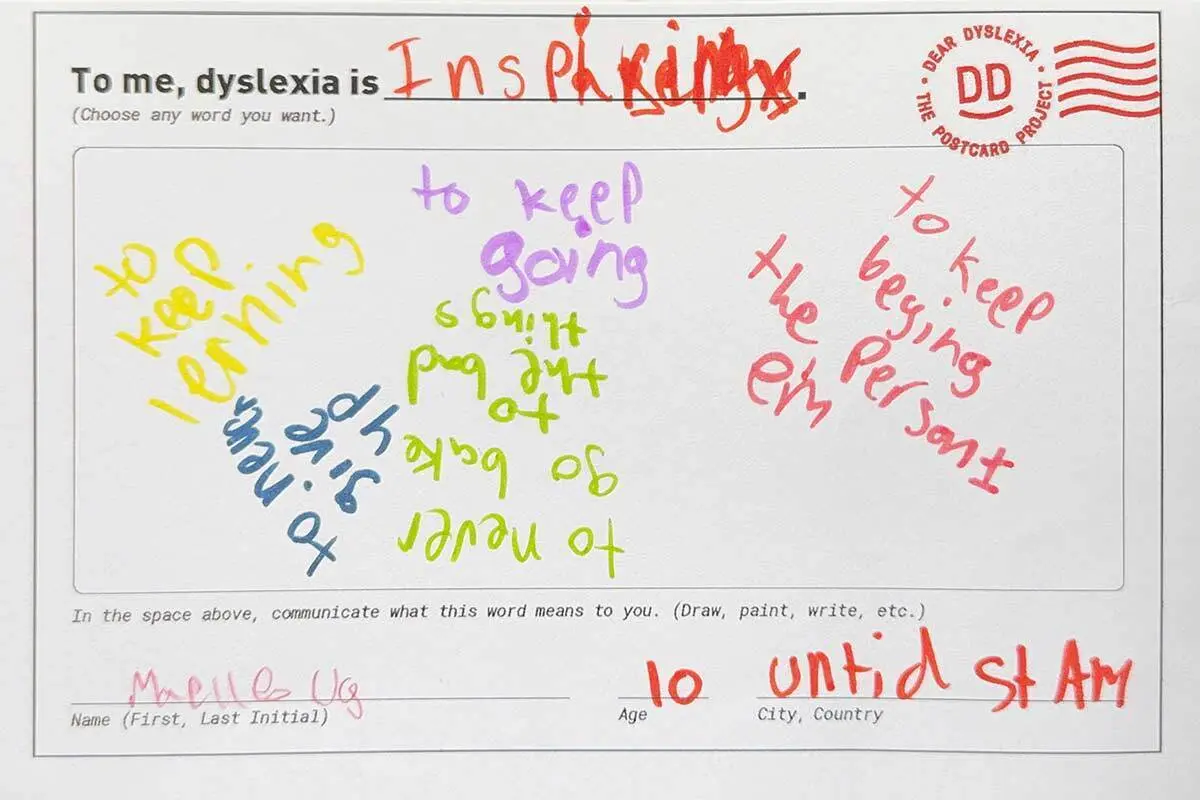 To me, dyslexia is Insphiring.
(Choose any word you want.)
DEAR DYSLEXIA
DD
THE POSTCARD PROJECT
to
keep
lerning
to never
give
up
to keep
going
to never
go bake
to
the bad
things
to keep
beging
the Persont
eim
In the space above, communicate what this word means to you. (Draw, paint, write, etc.)
10 untid st AM
Name (First, Last Initial) Age City, Country